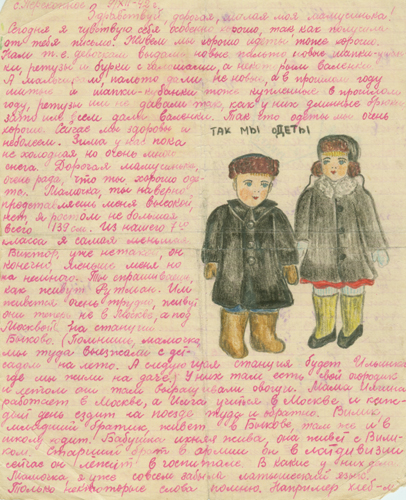 Здравствуй, дорогая, милая моя мамусинька!
Сегодня я чувствую себя особенно хорошо, так как получила
от тебя письмо. Живем мы хорошо одеты тоже хорошо.
Нам т.е. девочкам выдали новые пальто новые шапки-ушан-
ки, рейтузы и бурки с калошами, а некот. рым валенки.
А мальчикам пальто дали не новые, а в прошлом году
шитые и шапки-кубанки тоже купленные в прошлом
году, рейтузы им не давали так, как у них длинные брюки
зато им всем дали валенки. Так что одеты мы очень
хорошо. Сейчас мы здоровы и
не болеем. Зима у нас пока
не холодная но очень много
снега. Дорогая мамусинька,
очень рада, что ты хорошо оде-
та. Мамочка, ты наверно
представляешь меня высокой,
нет я ростом не большая
всего 139 см. Из нашего 7го
класса я самая меньшая
Виктор, уже не такой, он
конечно, меньше меня но
на немного. Ты спрашиваешь,
как живут Рутман. Им
живется очень трудно, живут
они теперь не в Москве, а под
Москвой на станции
Быково. (Помнишь, мамочка
мы туда выезжали с дет-
садом на лето. А следующая станция будет Ильинск
где мы жили на даче) У них там есть свой огородик
и летом они там выращивали овощи. Мама
работает в Москве, а Инга учится в Москве и каж-
дый день ездит на поезде туда и обратно. Вилик,
младший братик, живет в Быкове, там же и в
школу ходит. Бабушка ихняя жива, она живёт с Вили-
ком. Старший брат в армии он в
сейчас он (лежит) в госпитале.
Мамочка я уже совсем забыла латышский язык.
Только некоторые слова помню. Например хлеб-м
ТАК МЫ ОДЕТЫ